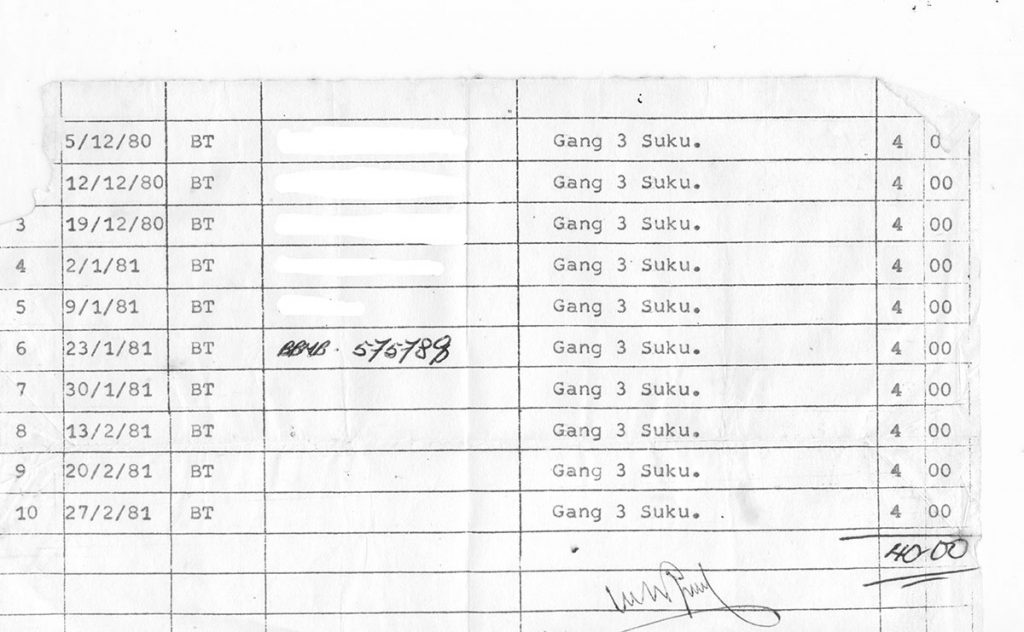 5/12/80 BT Gang 3 Suku. 4 0
12/12/80 BT Gang 3 Suku. 4 00
3 19/12/80 BT Gang 3 Suku. 4 00
4 2/1/81 BT Gang 3 Suku. 4 00
5 9/1/81 BT Gang 3 Suku. 4 00
6 23/1/81 BT BBMB. 575789 Gang 3 Suku. 4 00
7 30/1/81 BT Gang 3 Suku. 4 00
8 13/2/81 BT Gang 3 Suku. 4 00
9 20/2/81 BT Gang 3 Suku. 4 00
10 27/2/81 BT Gang 3 Suku. 4 00
40-00